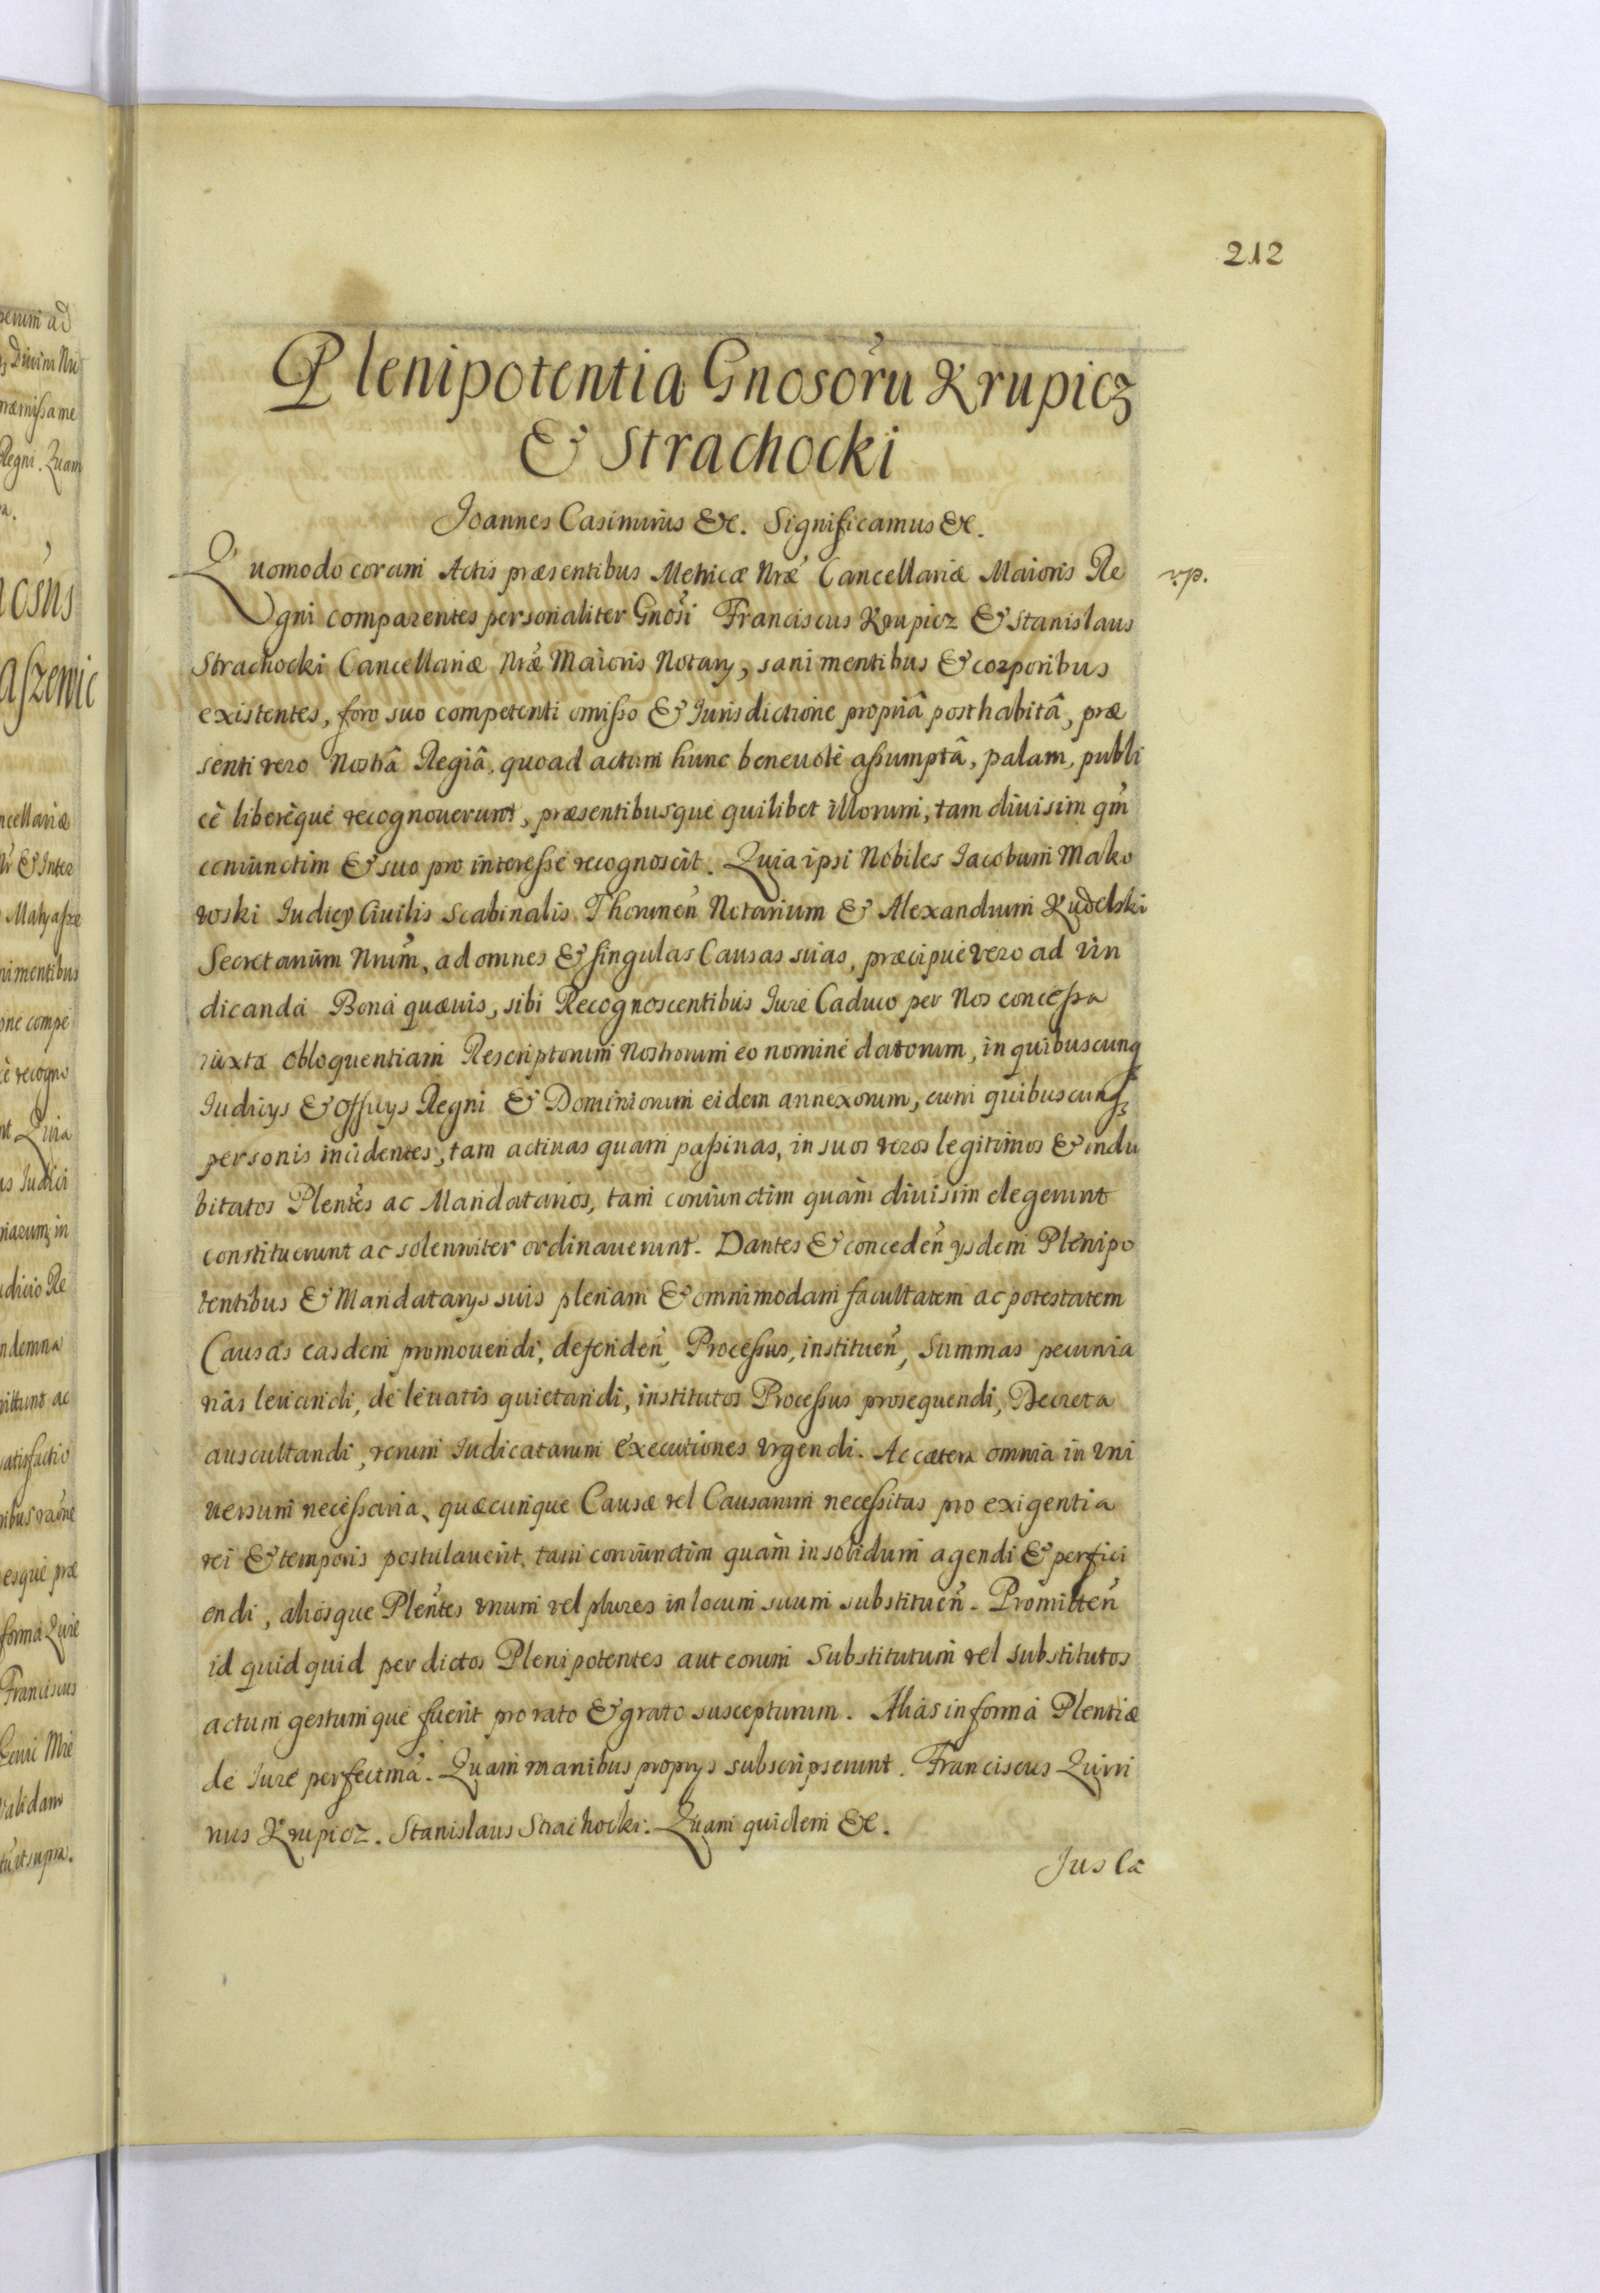 212
Plenipotentia Gnosoru Krupicz
& Strachocki
Joannes Casimirus &c. Significamus &c.
Quomodo coram Actis præsentibus Metricæ Nræ Cancellariæ Maioris Re
v.p.
gni comparentes personaliter Gnosi Franciscus Krupicz & Stanislaus
Strachocki Cancellariæ Nræ Maioris Notary, sani mentibus & corporibus
existentes, foro suo competenti omisso & Jurisdictione propriâ posthabitâ, præ
senti vero Nostrâ Regiâ, quoad actum hunc beneuole assumptâ, palam, publi
cè liberèque recognouerunt, præsentibusque quilibet illorum, tam diuisim qm
coniunctim & suo pro interesse recognoscit. Quia ipsi Nobiles Jacobum Mako
wski Judicy Ciuilis Scabinalis Thorunen Notarium & Alexandrum Rudelski
Secretarium Nrum, ad omnes & singulas Causas suas, præcipuè vero ad vin
dicanda Bona quæuis, sibi Recognoscentibus Jure Caduco per Nos concessa
iuxta obloquentiam Rescriptorum Nostrorum eo nomine datorum, in quibuscunq
Judicys & Officys Regni & Dominiorum eidem annexorum, cum quibuscunq
personis incidentes, tam actiuas quam passiuas, in suos veros legitimos & indu
bitatos Plentes ac Mandatarios, tam coniunctim quàm diuisim elegerunt
constituerunt ac solenniter ordinauerunt. Dantes & conceden ysdem Plenipo
tentibus & Mandatarys suis plenam & omnimodam facultatem ac potestatem
Causas easdem promouendi, defenden, Processus, instituen, Summas pecunia
rias leuandi, de leuatis quietandi, institutos Processus prosequendi, Decreta
auscultandi, rerum Judicatarum executiones vrgendi. Ac cætera omnia in vni
uersum necessaria, quæcunque Causæ vel Causarum necessitas pro exigentia
rei & temporis postulauerit, tam coniunctim quàm insolidum agendi & perfici
endi, aliosque Plentes vnum vel plures in locum suum substituen. Promitten
id quidquid per dictos Plenipotentes aut eorum Substitutum vel substitutos
actum gestumque fuerit pro rato & grato suscepturum. Aliàs in forma Plentiæ
de Jure perfectma. Quam manibus proprys subscripserunt. Franciscus Quiri
nus Krupicz. Stanislaus Strachocki. Quam quidem &c.
Jus Ca